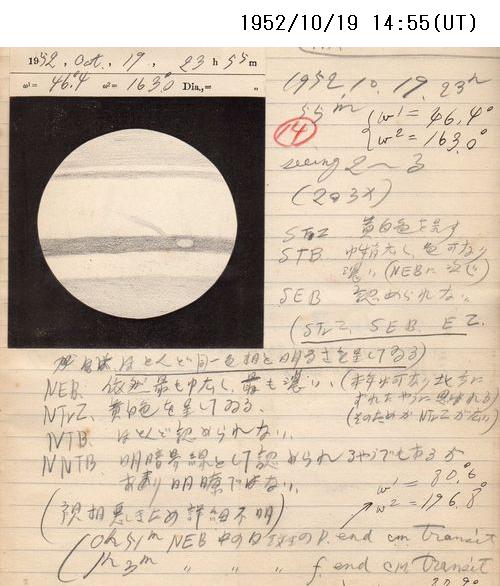 1952/10/19 14:55(UT)
1952, Oct, 19, 23 h 55 m
ω¹= 46.°4 ω²= 163.°0 Dia.,= "
1952. 10. 19. 23h
55m
ω¹ = 46.4°
ω² = 163.0°
14
seeing 2～3
(203X)
STrZ 黄白色を呈す
STB. 巾稍太し、色可なり
濃い (NEBに次ぐ)
SEB 認められない
(STrZ, SEB. EZ.
ほとんど同一色相と明るさを呈してゐる)
NEB. 依然最も巾太し、最も濃い、
NTrZ. 黄白色を呈してゐる.
(そのためか NTrZが広い)
NTB. ほとんど認められない.
NNTB. 明暗界線として認められるやうでもあるが
あまり明瞭ではない.
ω¹ = 80.°6
ω² = 196.8°
(像相悪しきため詳細不明)
(0h51m NEB中の白斑のP. end cm transit
1h 3m 〃 〃 〃 f end cm transit